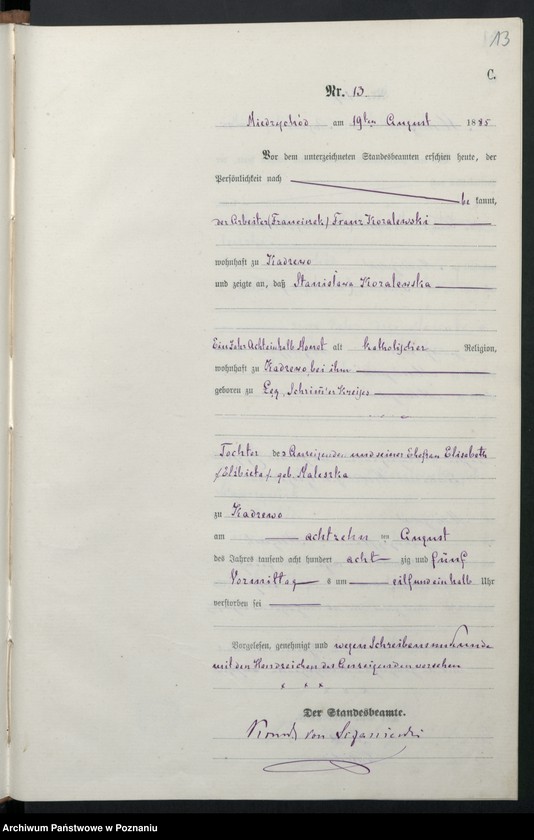 13
C.
Nr. 13
Miedzychód am 19ten August 1885
Vor dem unterzeichneten Standesbeamten erschien heute, der
Persönlichkeit nach
be kannt,
der Arbeiter (Franciszek) Franz Kozalewski
wohnhaft zu Kadzewo
und zeigte an, daß Stanislawa Kozalewska
Ein Jahr Achteinhalb Monat alt katholischer Religion,
wohnhaft zu Kadzewo bei ihm
geboren zu Łęg, Schrimmer Kreises
Tochter des Anzeigenden und seiner Ehefrau Elisabeth
/Elżbieta/ geb. Maleszka
zu Kadzewo
am achtzehn ten August
des Jahres tausend acht hundert acht zig und fünf
Vormittag s um eilf und einhalb Uhr
verstorben sei
Vorgelesen, genehmigt und wegen Schreibensunkunde
mit den Handzeichen des Anzeigenden versehen
x x x
Der Standesbeamte.
von
Archiwum Państwowe w Poznaniu